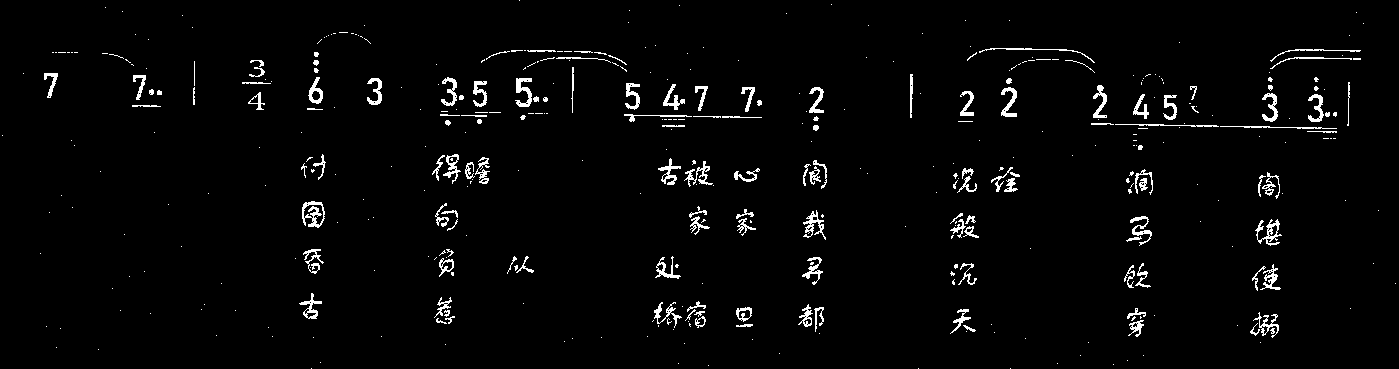 7 7·· | 3/4 6 3 3·5 5·· | 5 4·7 7· 2 | 2 2 2 4 5 7 3 3·· |
付 得瞻 古被 心 阆 况 诠 涧 阁
图 句 家 家 载 般 马 堪
昏 负 从 处 寻 沉 饮 使
古 惹 桥宿 旦 都 天 穿 搦